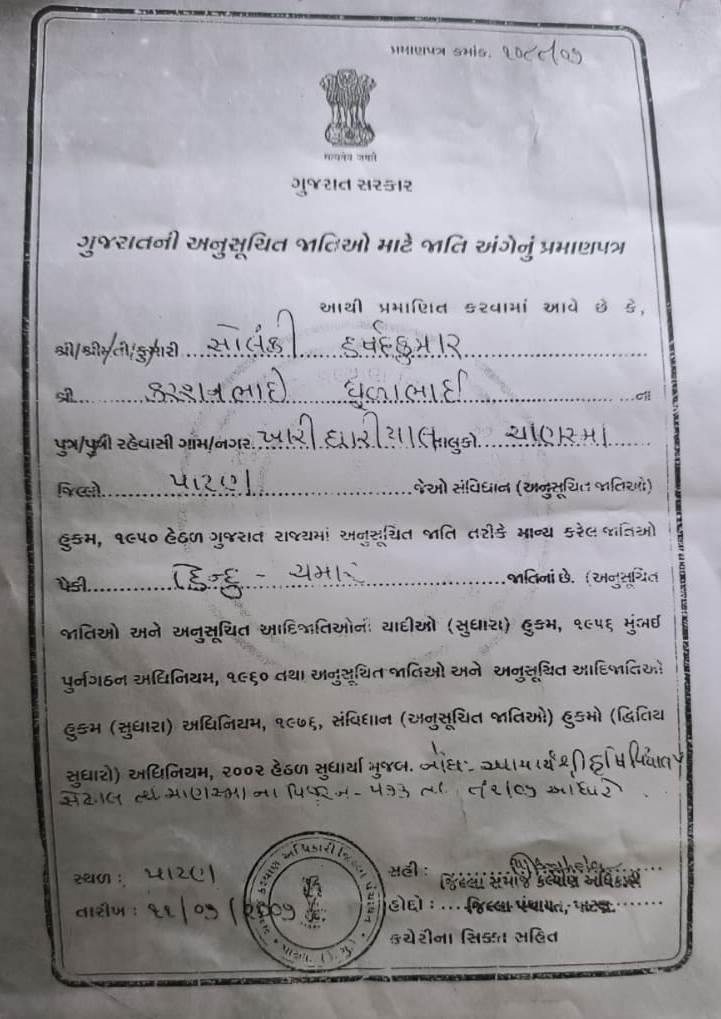 પ્રમાણપત્ર ક્રમાંક.
सत्यमेव जयते
ગુજરાત સરકાર
ગુજરાતની અનુસૂચિત જાતિઓ માટે જાતિ અંગેનું પ્રમાણપત્ર
આથી પ્રમાણિત કરવામાં આવે છે કે,
શ્રી/શ્રીમતી/કુમારી સોલંકી હર્ષદકુમાર
શ્રી કરશનભાઈ ધુળાભાઈ ના
પુત્ર/પુત્રી રહેવાસી ગામ/નગર ખારીધારીયાલ તાલુકો ચાણસ્મા
જિલ્લો પાટણ જેઓ સંવિધાન (અનુસૂચિત જાતિઓ)
હુકમ, ૧૯૫૦ હેઠળ ગુજરાત રાજ્યમાં અનુસૂચિત જાતિ તરીકે માન્ય કરેલ જાતિઓ
પૈકી હિન્દુ - ચમાર જાતિનાં છે. (અનુસૂચિત
જાતિઓ અને અનુસૂચિત આદિજાતિઓનાં યાદીઓ (સુધારા) હુકમ, ૧૯૫૬ મુંબઈ
પુર્નગઠન અધિનિયમ, ૧૯૬૦ તથા અનુસૂચિત જાતિઓ અને અનુસૂચિત આદિજાતિઓ
હુકમ (સુધારા) અધિનિયમ, ૧૯૭૬, સંવિધાન (અનુસૂચિત જાતિઓ) હુકમો (દ્વિતિય
સુધારો) અધિનિયમ, ૨૦૦૨ હેઠળ સુધાર્યા મુજબ. નોંધઃ- આચાર્યશ્રી
સ્થળ : પાટણ
સહી :
જિલ્લા સમાજ કલ્યાણ અધિકારી
તારીખ : ૧૧/૦૭/૨૦૦૭
હોદ્દો : જિલ્લા પંચાયત, પાટણ.
કચેરીના સિક્કા સહિત